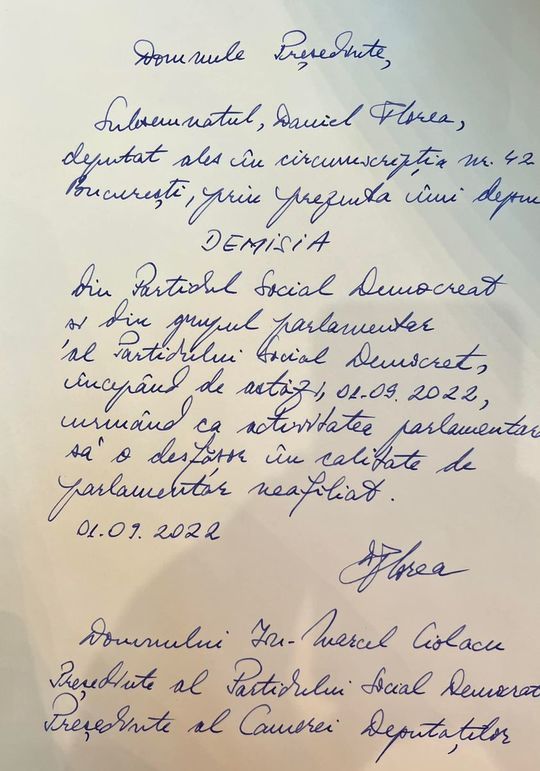 Domnule Președinte,
Subsemnatul, Daniel Florea,
deputat ales în circumscripția nr. 42
București, prin prezenta îmi depun
DEMISIA
din Partidul Social Democrat
și din grupul parlamentar
al Partidului Social Democrat,
începând de astăzi, 01.09.2022,
urmând ca activitatea parlamentară
să o desfășor în calitate de
parlamentar neafiliat.
01.09.2022
DFlorea
Domnului Ion-Marcel Ciolacu
Președinte al Partidului Social Democrat
Președinte al Camerei Deputaților